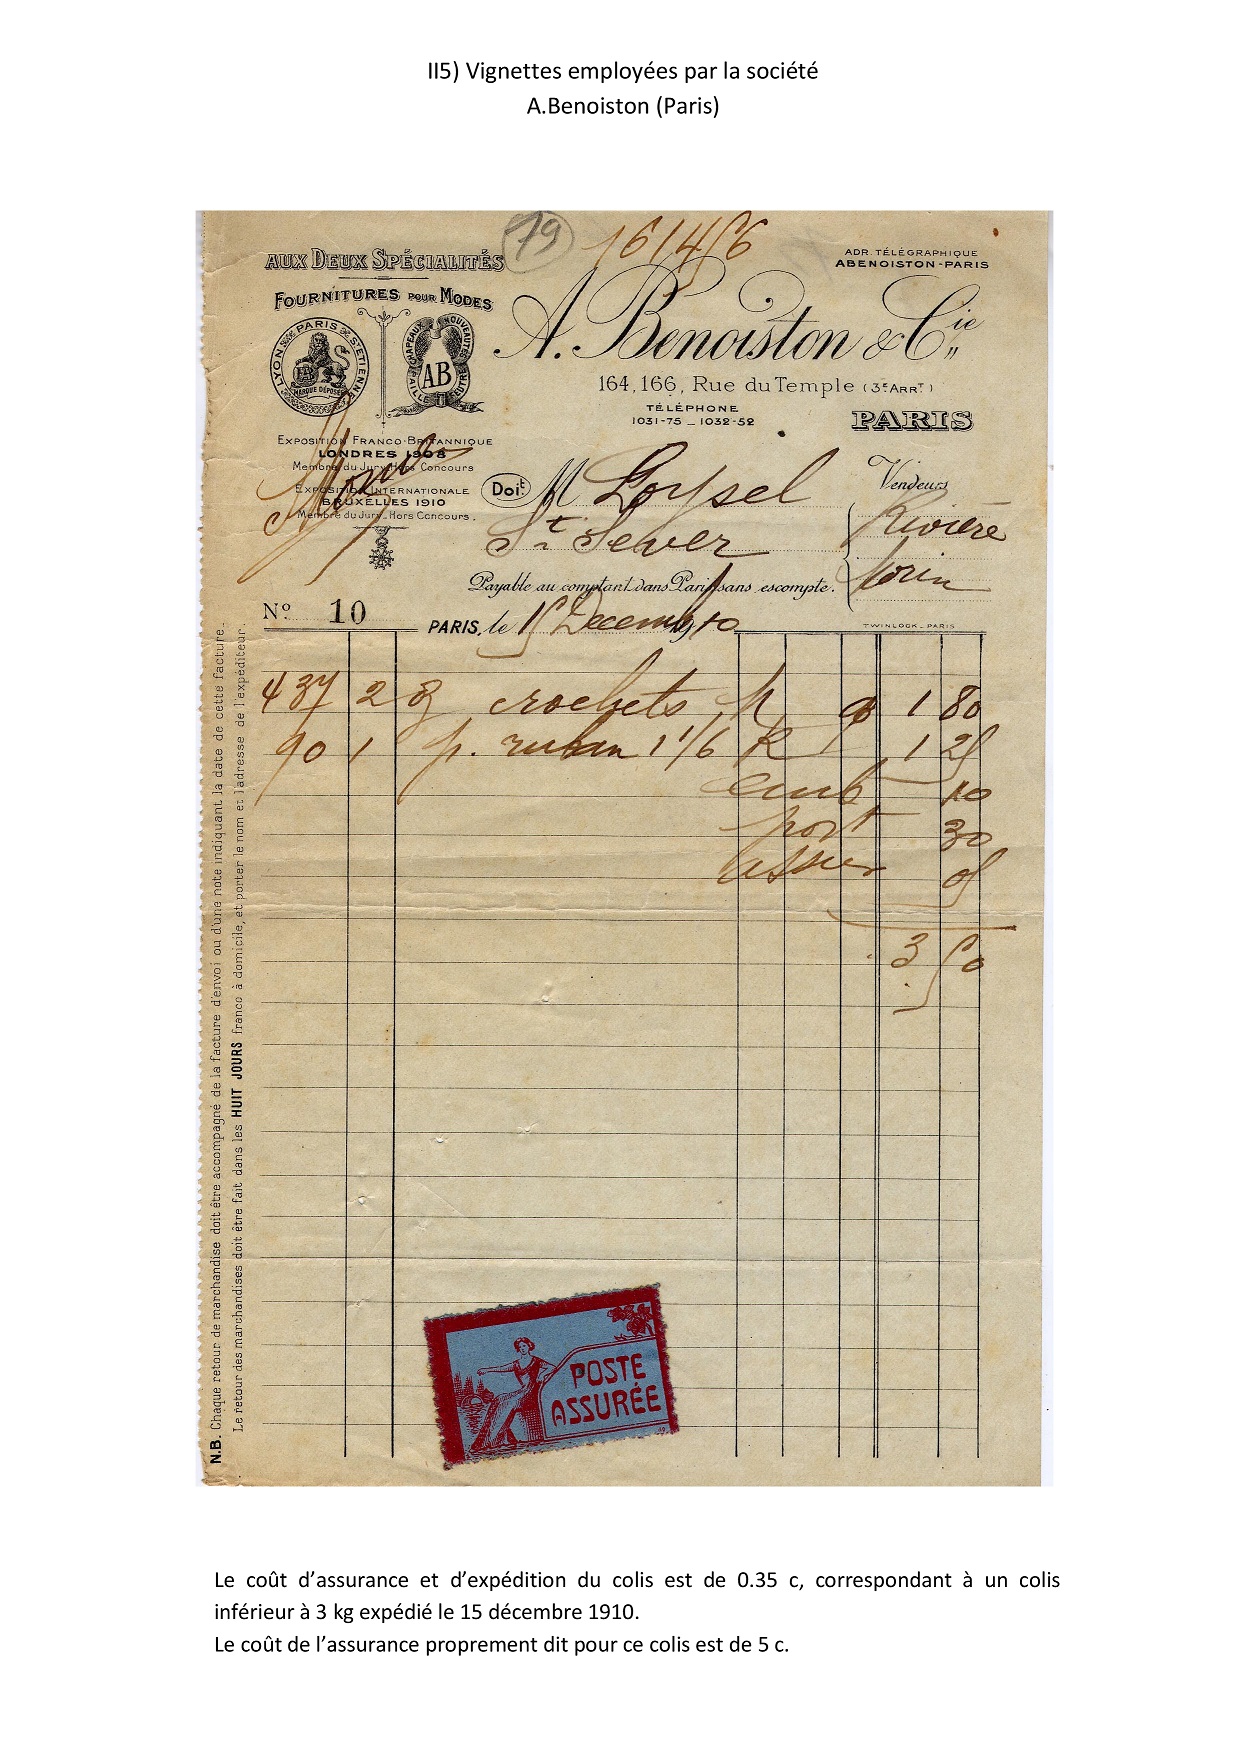 II5) Vignettes employées par la société
A.Benoiston (Paris)
79
161456
AUX DEUX SPÉCIALITÉS
FOURNITURES POUR MODES
LYON PARIS ST ETIENNE
AB
MARQUE DÉPOSÉE
CHAPEAUX NOUVEAUTÉS
PAILLE FEUTRE
AB
EXPOSITION FRANCO-BRITANNIQUE
LONDRES 1908
Membre du Jury Hors Concours
EXPOSITION INTERNATIONALE
BRUXELLES 1910
Membre du Jury - Hors Concours.
ADR. TÉLÉGRAPHIQUE
ABENOISTON-PARIS
A. Benoiston & Cie
164, 166, Rue du Temple (3E ARRT)
TÉLÉPHONE
1031-75 _ 1032-52
PARIS
Doit M Loysel
St Sever
Vendeurs
Rivière
Morin
Payable au comptant dans Paris sans escompte.
No. 10
PARIS, le 15 Decembre 10
TWINLOCK - PARIS
437 2 g crochets 1 80
90 1 p. ruban 1 1/6 R 1 25
emb 10
port 30
assur 05
3 50
N.B. Chaque retour de marchandise doit être accompagné de la facture d'envoi ou d'une note indiquant la date de cette facture.
Le retour des marchandises doit être fait dans les HUIT JOURS franco à domicile, et porter le nom et l'adresse de l'expéditeur.
POSTE
ASSURÉE
Le coût d'assurance et d'expédition du colis est de 0.35 c, correspondant à un colis
inférieur à 3 kg expédié le 15 décembre 1910.
Le coût de l'assurance proprement dit pour ce colis est de 5 c.